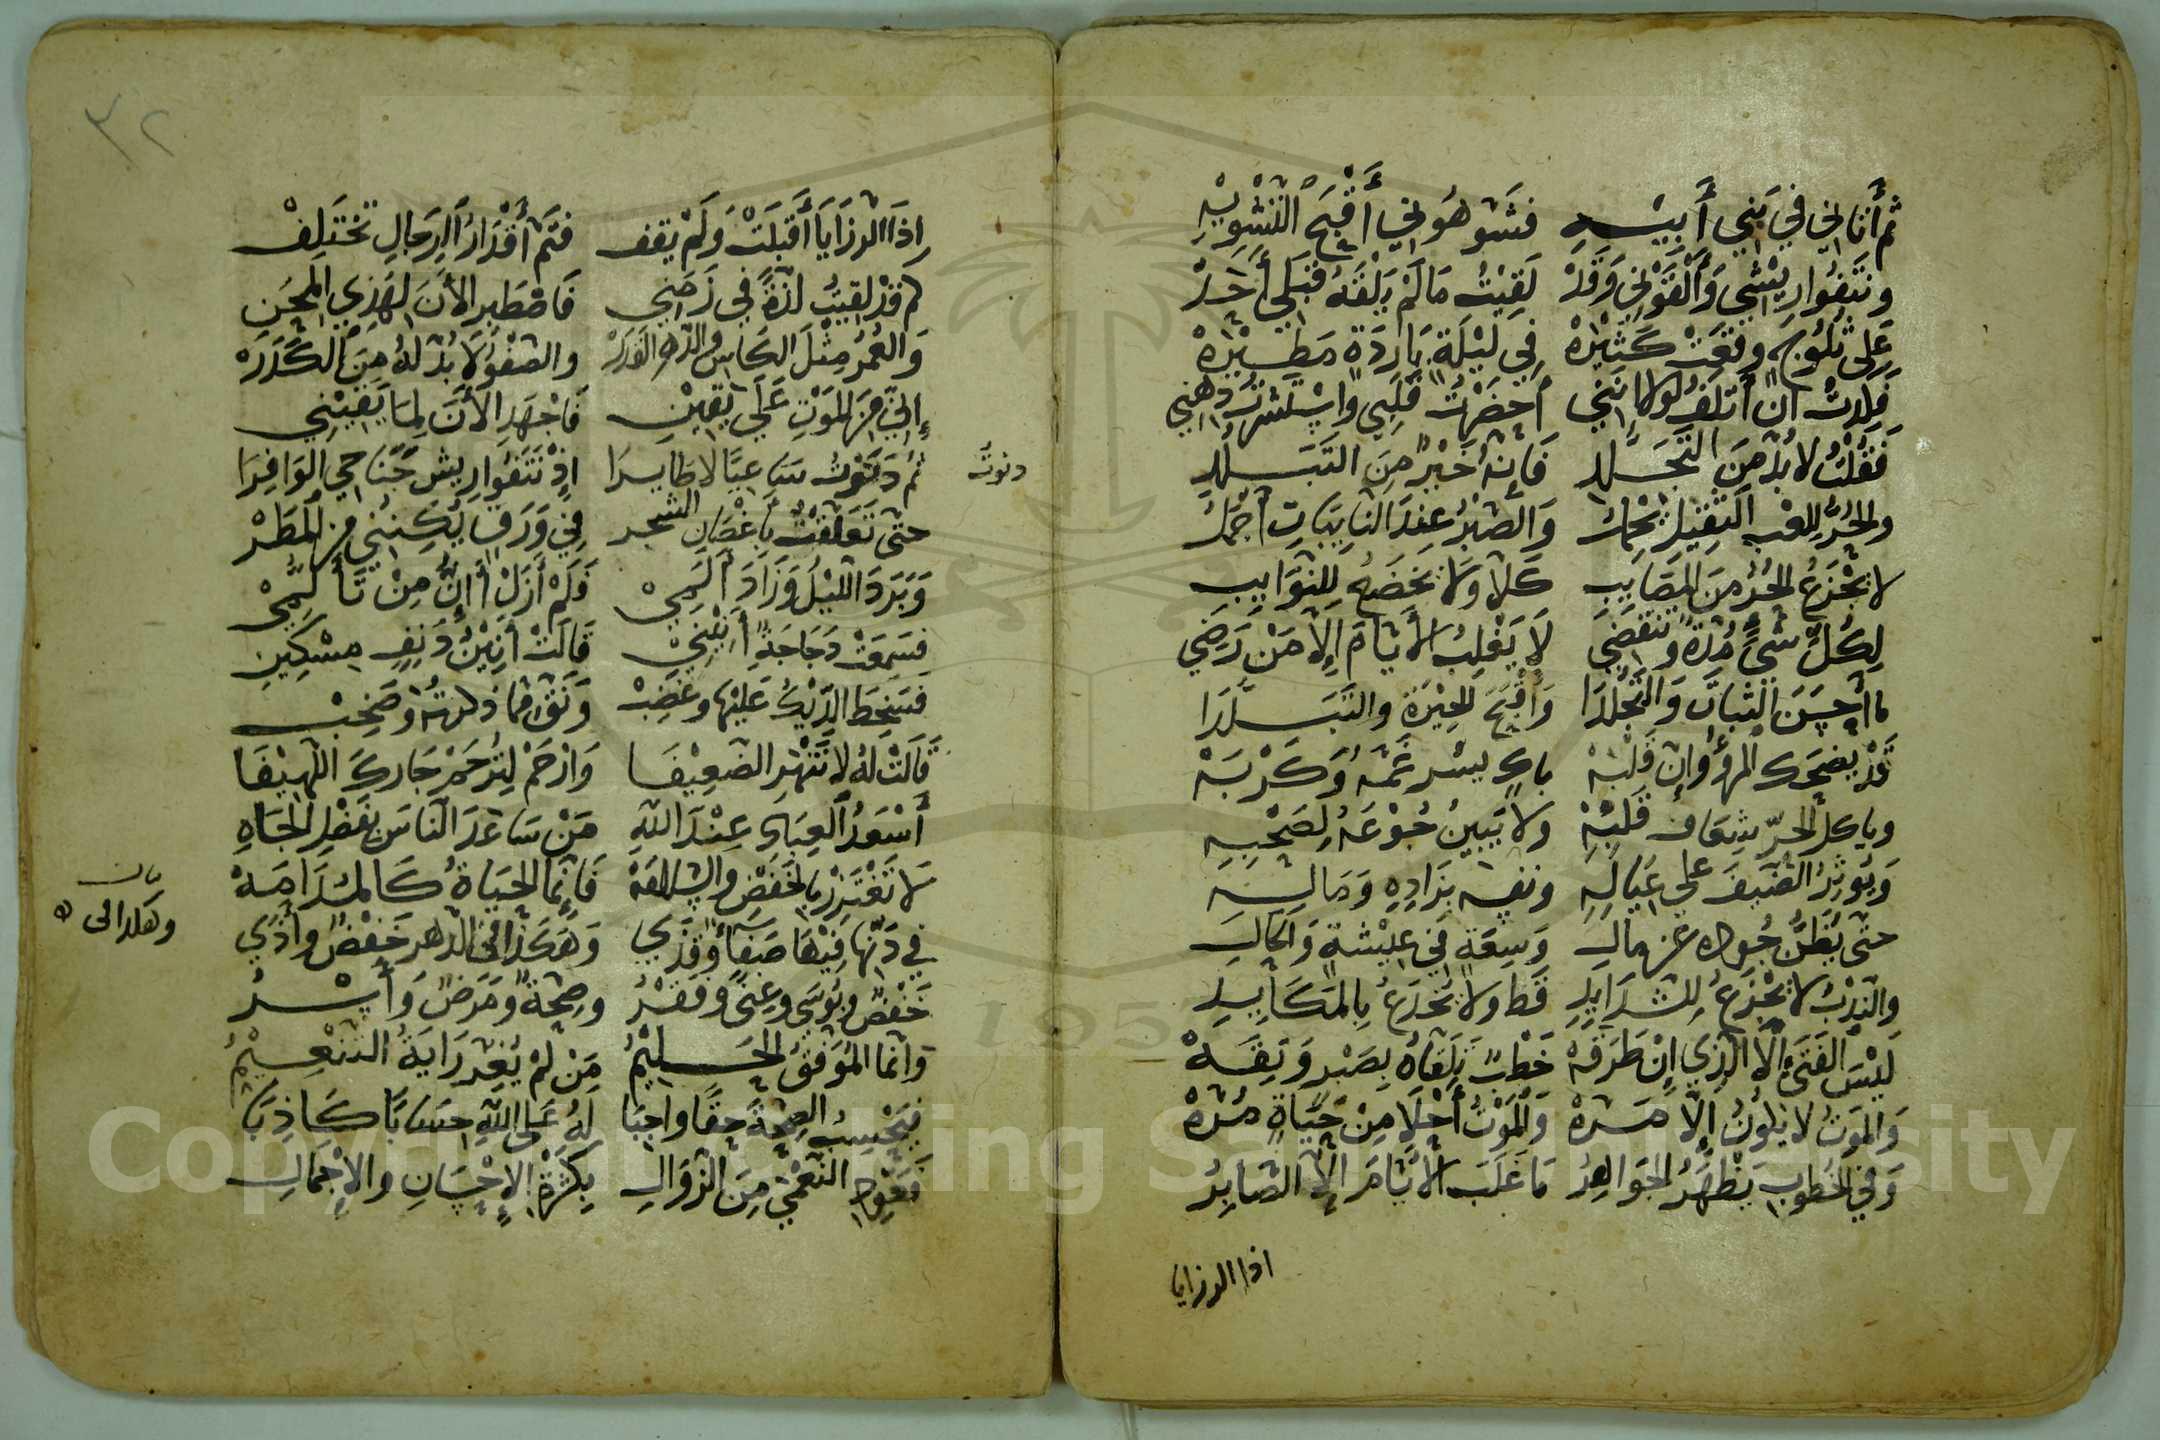 ثُمَّ أَتَانِي فِي بَنِي أَبِيْهِ فَشَوَّهُونِي أَقْبَحَ التَّشْوِيْهِ
وَنَتَفُوا رِيْشِي وَأَلْقَوْنِي وَقَدْ لَقِيْتُ مَا لَمْ يَلْقَهُ قَبْلِي أَحَدْ
عَلَى ثُلُوجٍ وَقَعَتْ كَثِيْرَهْ فِي لَيْلَةٍ بَارِدَةٍ مَطِيْرَهْ
فَكِدْتُ أَنْ أَتْلَفَ لَوْلَا أَنَّنِي أَحْضَرْتُ قَلْبِي وَاسْتَشَرْتُ ذِهْنِي
فَقُلْتُ لَا بُدَّ مِنَ التَّجَلُّدِ فَإِنَّهُ خَيْرٌ مِنَ التَّبَلُّدِ
وَالْحُرُّ لِلْعِبْءِ الثَّقِيْلِ يَحْمِلُ وَالصَّبْرُ عِنْدَ النَّايِبَاتِ أَجْمَلُ
لَا يَجْزَعُ الْحُرُّ مِنَ الْمَصَايِبِ كَلَّا وَلَا يَخْضَعُ لِلنَّوَايِبِ
لِكُلِّ شَيْءٍ مُدَّةٌ وَتَنْقَضِي لَا يَغْلِبُ الْأَيَّامَ إِلَّا مَنْ رَضِي
مَا أَحْسَنَ الثَّبَاتَ وَالتَّجَلُّدَا وَأَقْبَحَ الْحِيْرَةَ وَالتَّبَلُّدَا
قَدْ يَضْحَكُ الْمَرْؤُ وَإِنَّ قَلْبَهْ بَاكٍ يُسِرُّ غَمَّهُ وَكَرْبَهْ
وَيَاكُلُ الْحُرُّ شِغَافَ قَلْبِهْ وَلَا يُبِينُ جُوْعَهُ لِصَحْبِهِ
وَيُوثِرُ الضَّيْفَ عَلَى عِيَالِهِ وَنَفْسِهِ بِزَادِهِ وَمَالِهِ
حَتَّى يُظَنَّ جُودُهُ عَنْ مَالِ وَسِعَةٍ فِي عِيْشَةٍ وَحَالِ
وَالنَّدْبُ لَا يَجْزَعُ لِلشَّدَايِدِ قَطُّ وَلَا يُخْدَعُ بِالْمَكَايِدِ
لَيْسَ الْفَتَى إِلَّا الَّذِي إِنْ طَرَقَهْ خَطْبٌ تَلَقَّاهُ بِصَبْرٍ وَثِقَهْ
وَالْمَوْتُ لَا يَكُونُ إِلَّا مَرَّهْ وَالْمَوْتُ أَحْلَا مِنْ حَيَاةٍ مُرَّهْ
وَفِي الْخُطُوبِ يَظْهَرُ الْجَوَاهِرُ مَا غَلَبَ الْأَيَّامَ إِلَّا الصَّابِرُ
اذا الرزايا
٣٢
إِذَا الرَّزَايَا أَقْبَلَتْ وَلَمْ يَقِفْ فَثَمَّ أَقْدَارُ الرِّجَالِ تَخْتَلِفْ
كَمْ قَدْ لَقِيْتُ لَذَّةً فِي زَمَنِي فَاصْطَبِرِ الْأَنَ لِهَذِي الْمِحَنِ
وَالْعُمْرُ مِثْلُ الْكَاسِ وَالدَّهْرُ الْقَذَرْ وَالصَّفْوُ لَا بُدَّ لَهُ مِنَ الْكَدَرْ
إِنِّي مِنَ الْمَوْتِ عَلَى يَقِيْنِ فَاجْهَدِ الْأَنَ لِمَا يَقِيْنِي
ثُمَّ دَنَوْتُ سَاعِيًا لَا طَايِرَا إِذْ نَتَفُوا رِيشَ جَنَاحِي الْوَافِرَا
دنوت
حَتَّى تَعَلَّقْتُ بِأَغْصَانِ الشَّجَرْ فِي وَرَقٍ يُكِنُّنِي مِنَ الْمَطَرْ
وَبَرَدَ اللَّيْلُ وَزَادَ أَلَمِيْ فَلَمْ أَزَلْ أَإِنُّ مِنْ تَأَلُّمِيْ
فَسَمِعَتْ دَجَاجَةٌ أَنِيْنِيْ قَالَتْ أَنِيْنُ دَنِفٍ مِسْكِينِ
فَسَخِطَ الدِّيْكُ عَلَيْهَا وَغَضِبْ وَنَقَّ مِمَّا ذَكَرَتْهُ وَصَخِبْ
قَالَتْ لَهُ لَا تَنْهَرِ الضَّعِيْفَا وَارْحَمْ لِتُرْحَمْ جَارَكَ اللَّهِيْفَا
أَسْعَدُ الْعِبَادِ عِنْدَ اللَّهِ مَنْ سَاعَدَ النَّاسَ بِفَضْلِ الْجَاهِ
لَا تَغْتَرِرْ بِالْخَفْضِ وَالسَّلَامَهْ فَإِنَّمَا الْحَيَاةُ كَالْمُدَامَهْ
فِي دَنِّهَا فِيْهَا صَفًا وَقَذًى وَهَكَذَا فِي الدَّهْرِ خَفْضٌ وَأَذًى
خَفْضٌ وَبُوسَى وَغِنًى وَفَقْرُ وَصِحَّةٌ وَمَرَضٌ وَأَسْرُ
وَإِنَّمَا الْمُوَفَّقُ الْحَلِيْمُ مَنْ لَمْ يُغِرَّ رَايَهُ التَّنْعِيْمُ
فَيَحْسِبُ الصِّحَّةَ حَقًّا وَاجِبَا لَهُ عَلَى اللَّهِ حِسَابًا كَاذِبَا
فَعَوِّذِ النُّعْمَى مِنَ الزَّوَالِ بِكَثْرَةِ الْإِحْسَانِ وَالْإِجْمَالِ
Copyright © King Saud University
1957